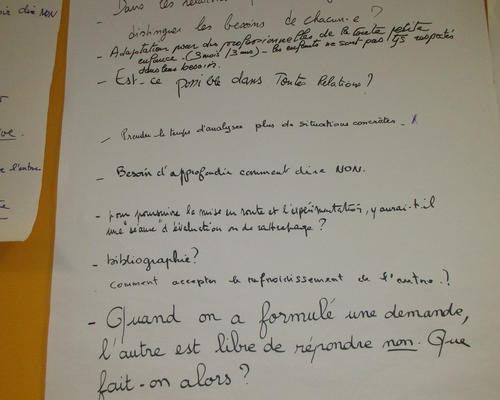 oir dire NON
ve.
e l'autre
- Dans les relations
distinguer les besoins de chacun.e ?
- Adaptation pour des professionnelles de la toute petite
enfance - (3 mois / 3 ans) - les enfants ne sont pas tjs respectés
dans leur besoin.
- Est-ce possible dans Toutes Relations ?
- Prendre le temps d'analyser plus de situations concrètes -
- Besoin d'approfondir comment dire NON.
- pour poursuivre la mise en route et l'expérimentation, y aurai-t-il
une "séance" d'évaluation ou de rattrapage ?
- bibliographie ?
comment accepter le refroidissement de l'autre. ?
- Quand on a formulé une demande,
l'autre est libre de répondre non. Que
fait-on alors ?